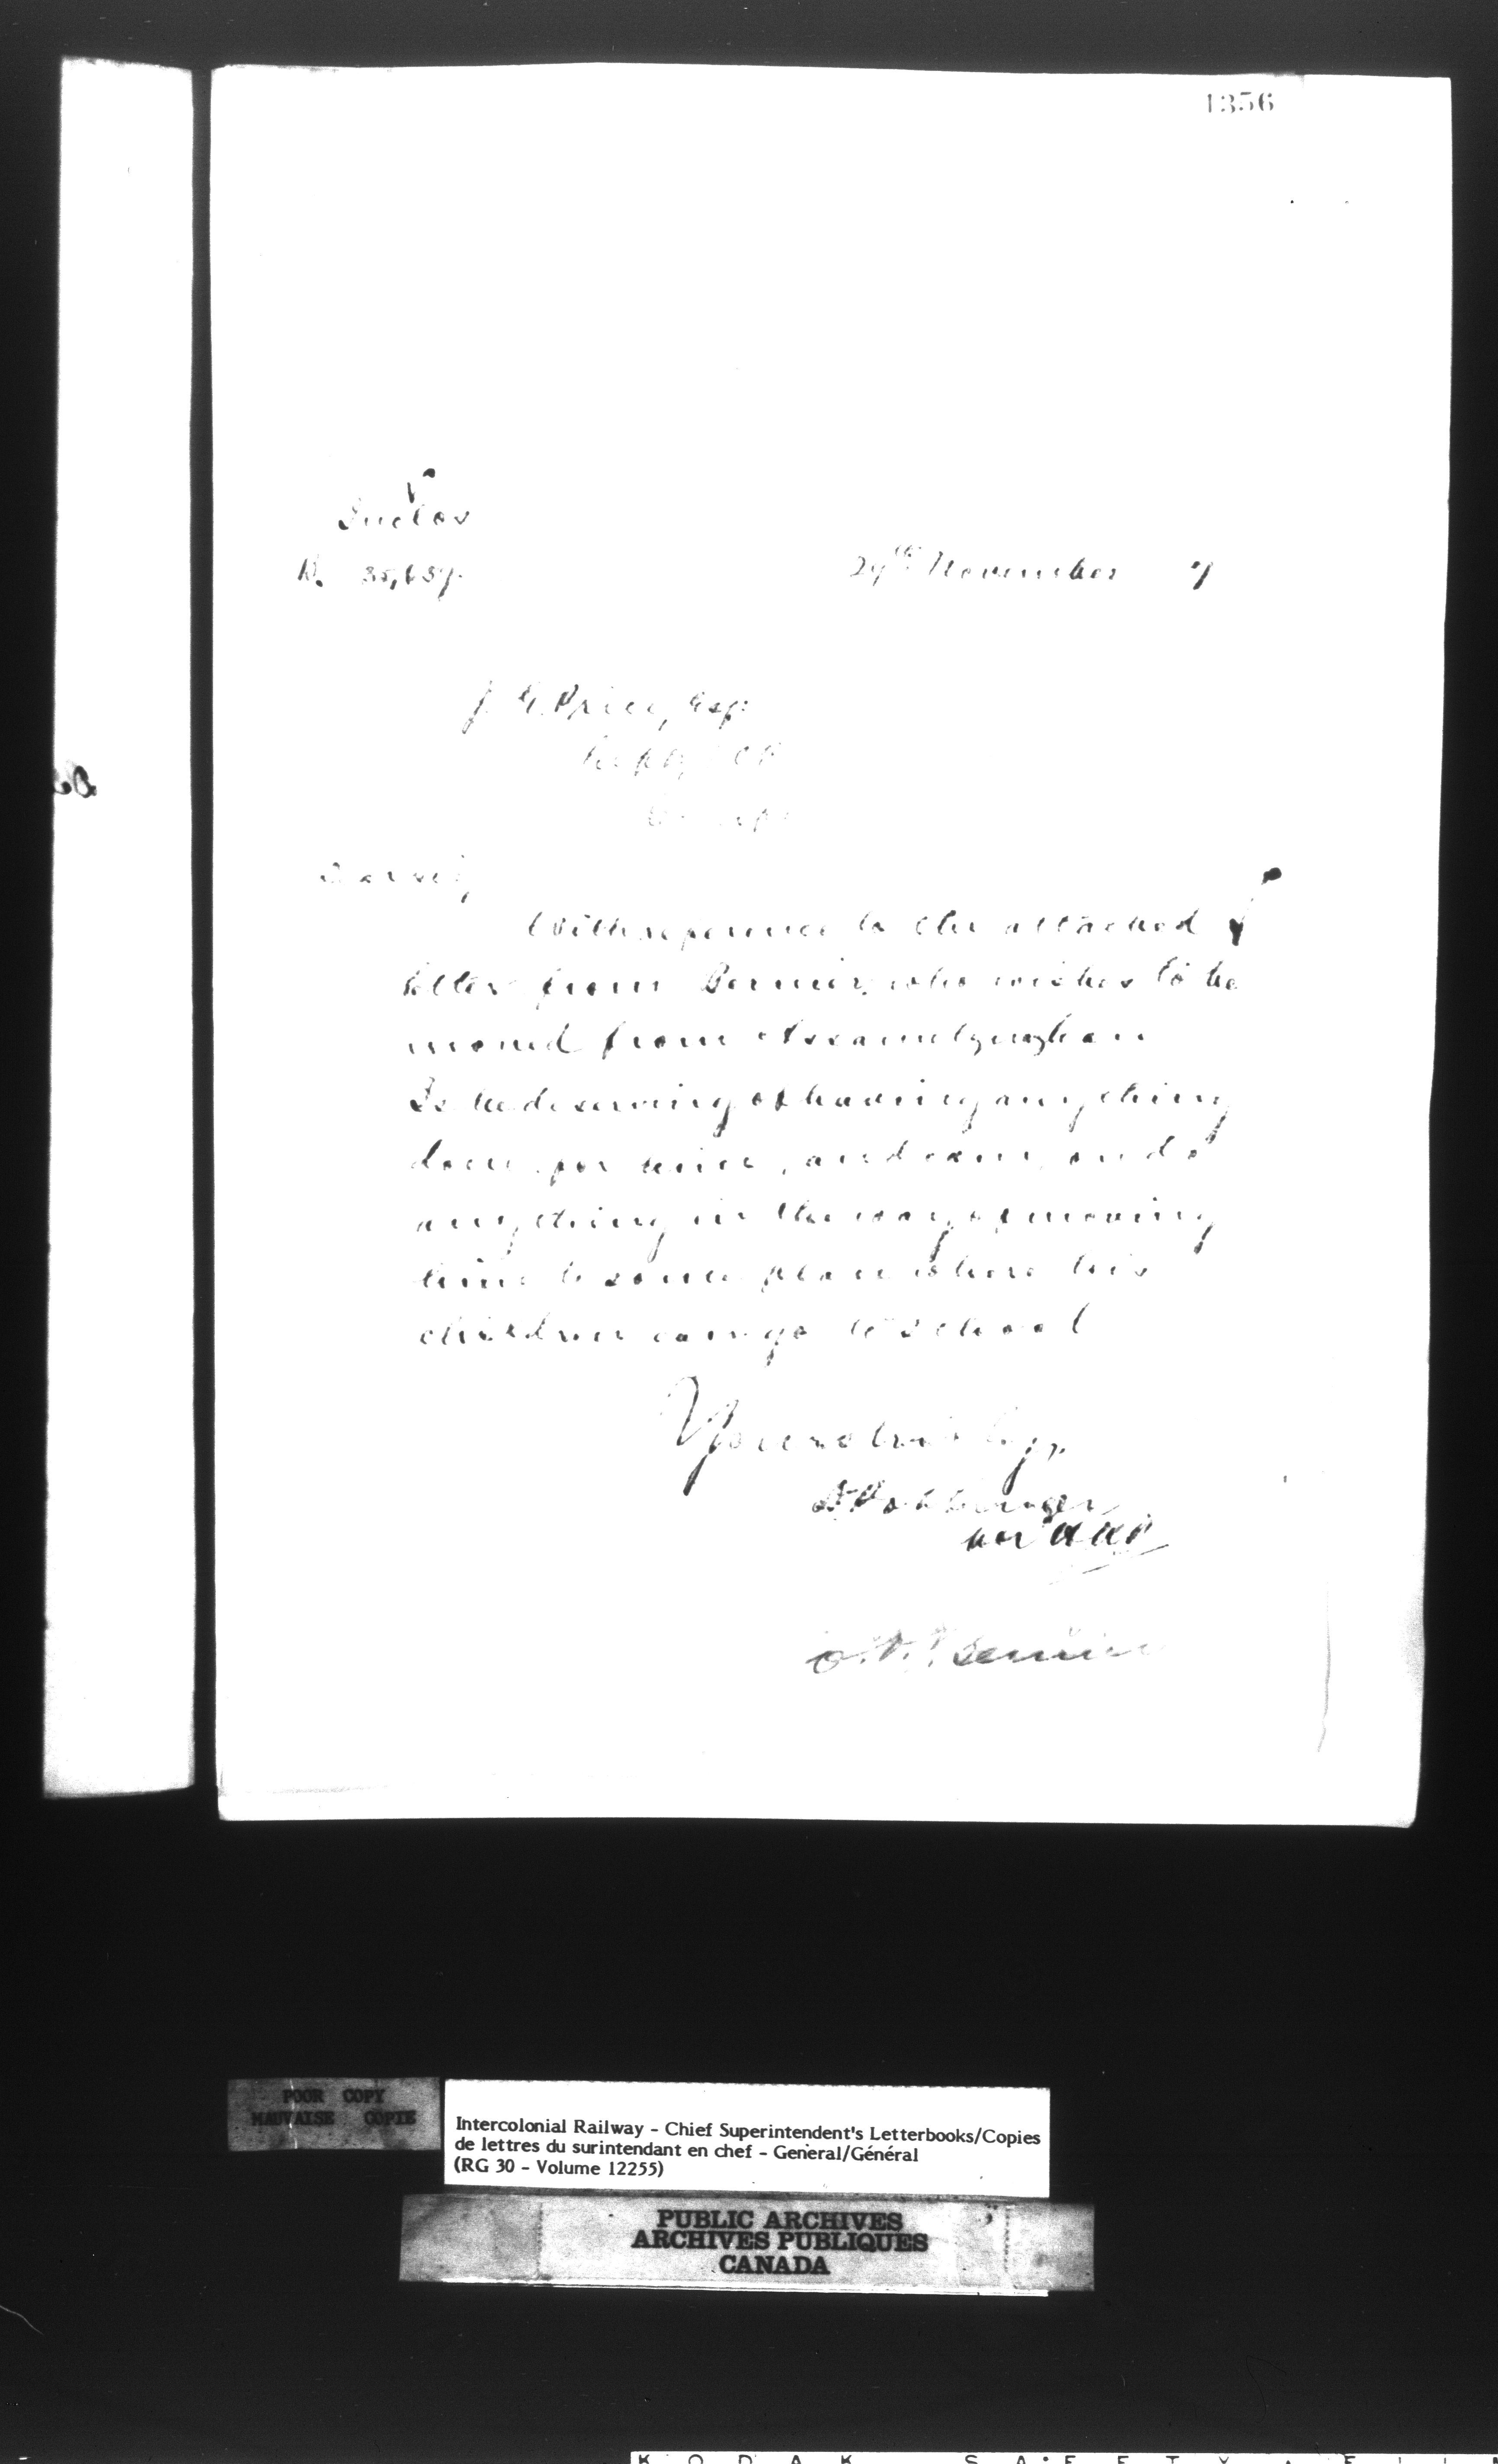 1356
Enclos
R. 35,637.
29th November 7
J. G. Price, Esq:
Dear Sir,
With reference to the attached
letter from Bernier, who wishes to be
moved from Assametquaghan
Is he deserving of having anything
done for him, and can you do
anything in the way of moving
him to some place where his
children can go to school
Yours truly,
D. Pottinger
per
Bernier
POOR COPY
MAUVAISE COPIE
Intercolonial Railway - Chief Superintendent's Letterbooks/Copies
de lettres du surintendant en chef - General/Général
(RG 30 - Volume 12255)
PUBLIC ARCHIVES
ARCHIVES PUBLIQUES
CANADA
KODAK SAFETY